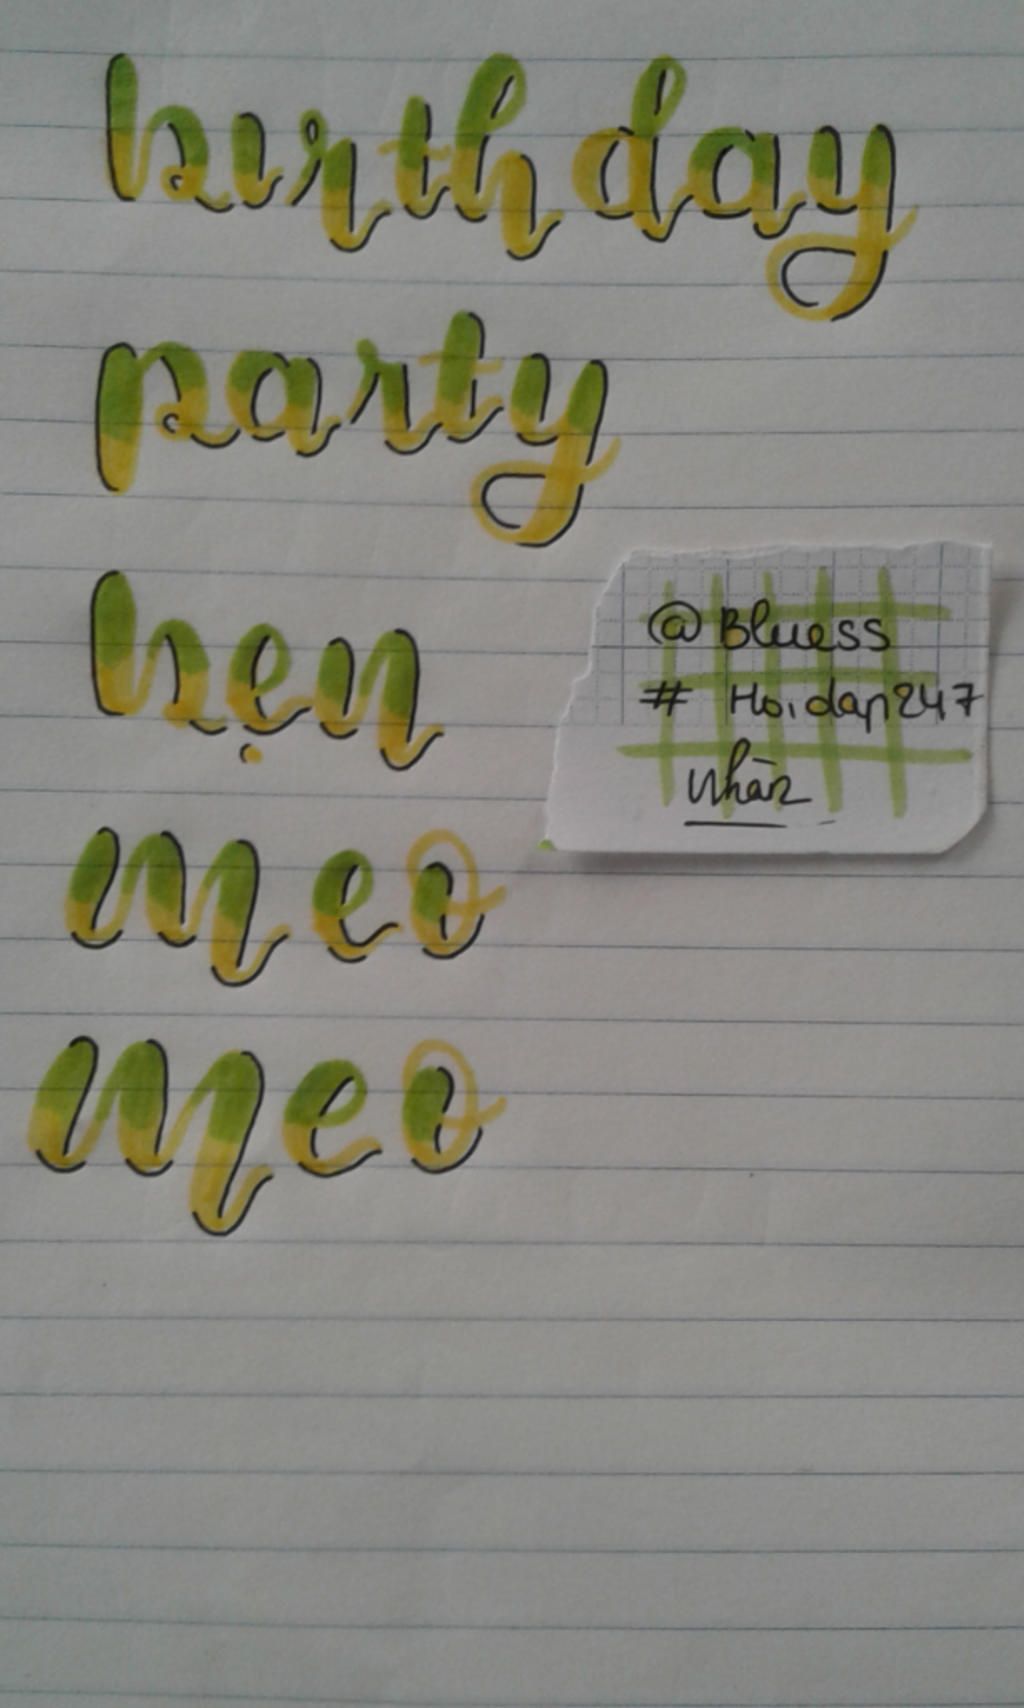 birthday
party
hẹn
meo
meo
@Bluess
# Hoidap247
Nhàn